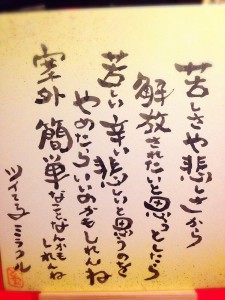 苦しさや悲しさから
解放されたいと思うとしたら
苦しい辛い悲しいと思うのを
やめたらいいのかもしれんね
案外簡単なことなんかも
しれんね
ツイてる子ミラクル